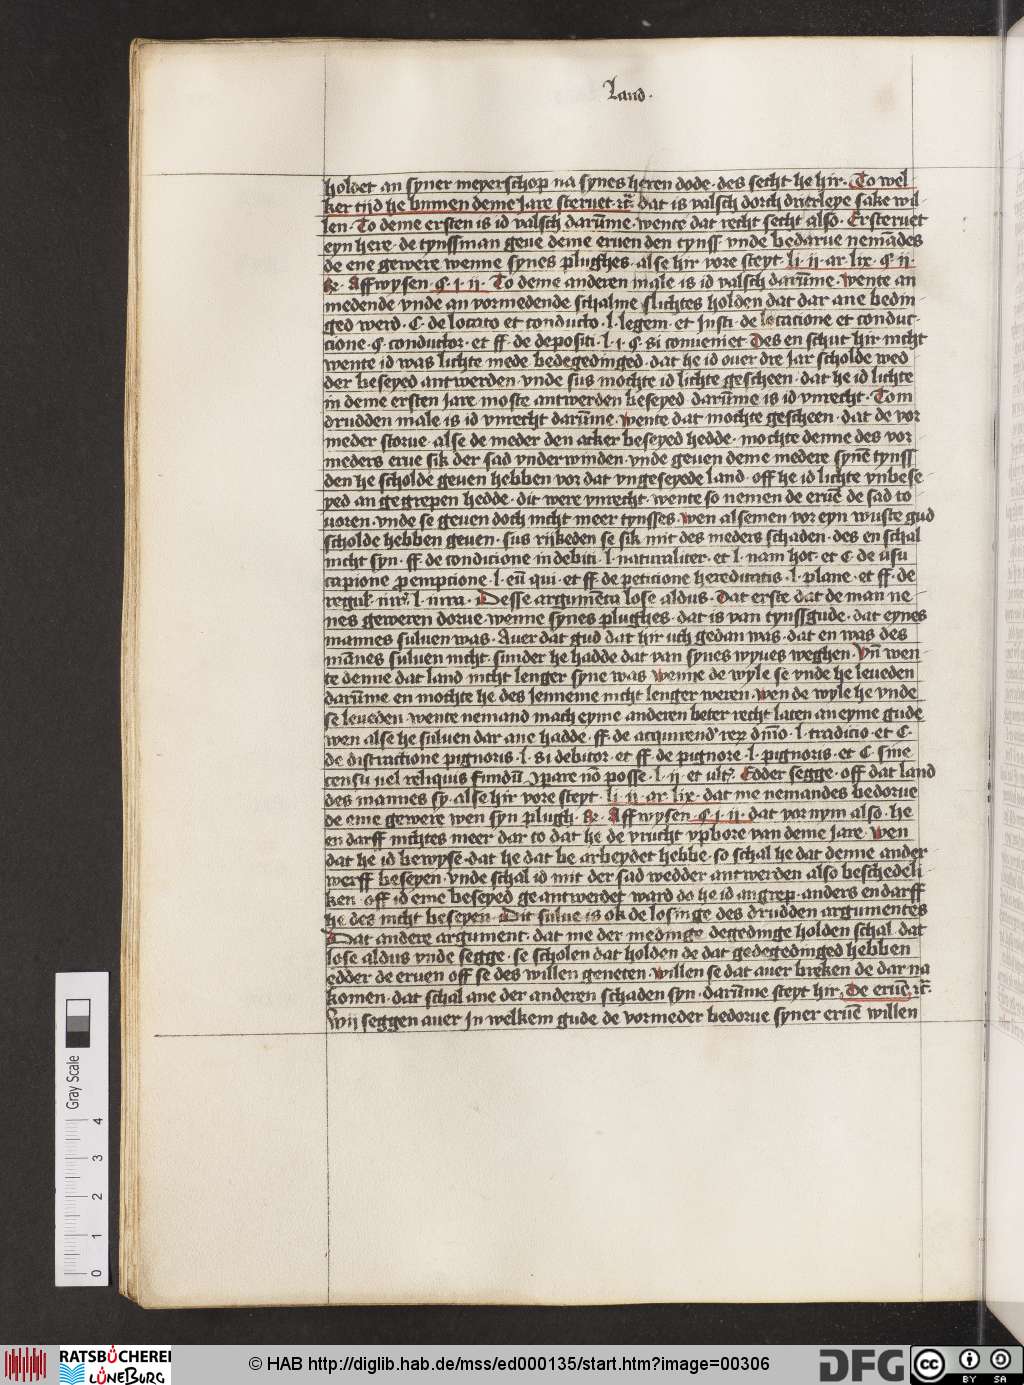 Land.
holdet an syner meyerschop na synes heren dode. des secht he hir. To wel
ker tijd he bynnen deme Jare steruet rc̄. dat is valsch dorch drierleye sake wil
len. To deme ersten is id valsch darūme. wente dat recht secht also. Ersteruet
eyn here. de tynssman geue deme eruen den tynss vnde bedarue nemādes
de ene gewere wenne synes plughes. alse hir vore steyt. li. ij. ar. lix. § ij.
&. Affwysen. § .i. ij. To deme anderen male is id valsch darūme. wente an
medende vnde an vormedende schalme slichtes holden dat dar ane bedin
ged werd. C. de locato et conducto. l. legem. et Insti. de locacione et conduc
cione. § conductor. et ff. de depositi. l. i. § si conueniet. Des en schut hir nicht
wente id was lichte mede bedegedinged. dat he id ouer dre Jar scholde wed
der beseyed antwerden. vnde sus mochte id lichte gescheen. dat he id lichte
in deme ersten Jare moste antwerden beseyed. darūme is id vnrecht. Tom
drudden male is id vnrecht darūme. wente dat mochte gescheen. dat de vor
meder storue. alse de meder den acker beseyed hedde. mochte denne des vor
meders erue sik der sad vnderwinden. vnde geuen deme medere synē tynss
den he scholde geuen hebben vor dat vngeseyede land. off he id lichte vnbese
yed an gegrepen hedde. dit were vnrecht. wente so nemen de eruē de sad to
uoren. vnde se geuen doch nicht meer tynsses. wen alsemen vor eyn wuste gud
scholde hebben geuen. sus rijkeden se sik mit des meders schaden. des en schal
nicht syn. ff. de condicione indebiti. l. naturaliter. et l. nam hoc. et C. de usu
capione p emptione. l. eū qui. et ff. de peticione hereditatis. l. plane. et ff. de
regul. iur. l. iura. Desse argumēta lose aldus. Dat erste dat de man ne
nes geweren dorue. wenne synes plughes. dat is van tynssgude. dat eynes
mannes suluen was. Auer dat gud dat hir uth gedan was. dat en was des
mānes suluen nicht. sunder he hadde dat van synes wyues weghen. Vn̄ wen
te denne dat land nicht lenger syne was wenne de wyle se vnde he leueden
darūme en mochte he des Jenneme nicht lenger weren. wen de wyle he vnde
se leueden. wente nemand mach eyme anderen beter recht laten an eyme gude
wen alse he suluen dar ane hadde. ff. de acquirend' rer' dn̄io. l. tradicio. et C.
de distractione pignoris. l. si debitor. et ff. de pignore. l. pignoris. et C. sine
censu uel reliquis fundū ꝯpare nō posse. l. ij. et ult'. Edder segge. off dat land
des mannes sy. alse hir vore steyt. li. ij. ar. lix. dat me nemandes bedorue
de eme gewere wen syn plugh. &. Affwysen. § .i. ij. dat vornym also. he
en darff nichtes meer dar to dat he de vrucht vpbore van deme Jare. wen
dat he id bewyse. dat he dat be arbeydet hebbe. so schal he dat denne ander
werff beseyen. vnde schal id mit der sad wedder antwerden also beschedeli
ken. off id eme beseyed ge antwerdet ward do he id angrep. anders en darff
he des nicht beseyen. Dit sulue is ok de losinge des drudden argumentes
Dat andere argument. dat me der medinge degedinge holden schal. dat
lose aldus vnde segge. se scholen dat holden de dat gedegedinged hebben
edder de eruen off se des willen geneten. willen se dat auer breken de dar na
komen. dat schal ane der anderen schaden syn. darūme steyt hir. De eruē. rc̄.
Wij seggen auer Jn welkem gude de vormeder bedorue syner eruē willen
Gray Scale
0 1 2 3 4
RATSBÜCHEREI LÜNEBURG
© HAB http://diglib.hab.de/mss/ed000135/start.htm?image=00306
DFG
cc BY SA